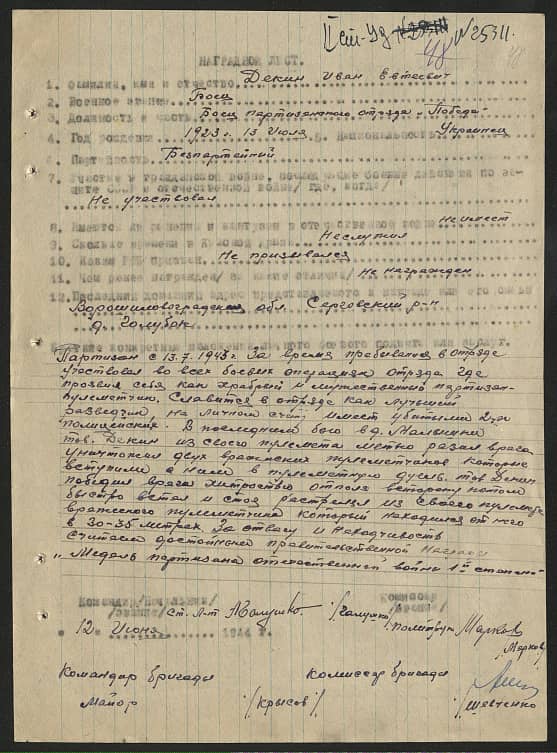 № 25311.
48
НАГРАДНОЙ ЛИСТ.
1. Фамилия, имя и отчество Декин Иван Евтеевич
2. Военное звание Боец
3. Должность и часть Боец партизанского отряда "Победа"
4. Год рождения 1923 г. 13 Июля 5. Национальность Украинец
6. Партийность Безпартейный
7. Участие в гражданской войне, последующие боевые действия по защите СССР и отечественной войне/ где, когда/
Не участвовал
8. Имеет ли ранения и контузии в отечественной войне Неимеет
9. Сколько времени в Красной армии Неслужил
10. Каким РВК призван Не призывался
11. Чем ранее награжден/ за какие отличия/ Не награжден
12. Последний домашний адрес представляемого к награде или его семьи
Ворошиловоградская обл. Серговский р-н
д. Голубок
Краткое конкретное изложение личного боевого подвига или заслуг.
Партизан с 13.7.1943 г. За время пребывания в отряде
участвовал во всех боевых операциях отряда где
проявил себя как храбрый и мужественный партизан-
пулеметчик. Славится в отряде как лучший
разведчик на личном счету имеет убитыми
полицейских. В последнем бою в д.
тов. Декин из своего пулемета метко разал врага
уничтожил двух вражеских пулеметчиков которые
вступили с ним в пулеметную дуэль. тов Декин
победил врага хитростью отполз в сторону потом
быстро встал и стоя растрелял из своего пулемета
вражеского пулеметчика который находился от него
в 30-35 метрах. За отвагу и находчивость
считаем достойным правительственной награды
"Медаль партизана отечественной войны 1й степени"
Командир/Начальник/ Комиссар
/звание/ ст. л-т /Галушко/ /звание/ политрук Марков
/Марков/
"12" Июня 1944 г.
Командир бригады Комиссар бригады
Майор /Крысов/ /Шевченко/